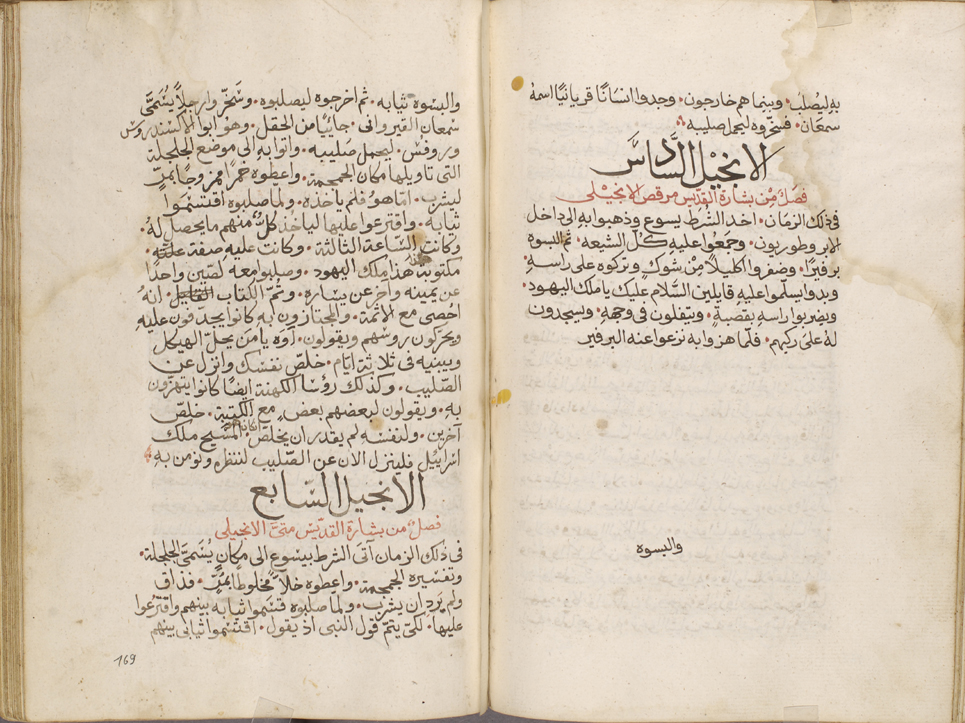 به ليصلب۰ وبينما هم خارجون۰ وجدوا انسانًا قريانيًا اسمهُ
سمعان۰ فسخّروه ليحمل صليبه
الانجيل السَّادس
فصلٌ مِنْ بشارة القديس مرقص الانجيلى
فى ذلك الزمان۰ اخد الشُرط يسوع وذهبوا به الى داخل
الابروطوريون۰ وجمعَوا عليه كلّ الشيعه۰ ثمّ البسوه
برفيرًا۰ وضفروا اكليلاً مِنْ شوك وتركوه على راسهِ۰
وبدوا يسلّموا عليهِ قايلين السَّلام عليك ياملك اليهود۰
ويضربوا راسهِ بقصبةٍ۰ ويتفلون فى وجههِ۰ ويسجدون
لهُ علىَ ركبهم۰ فلّما هزوا به نزعوا عنه البرفير
والبسوه
والبسوه ثيابه۰ ثم اخرجوه ليصلبوه۰ وسَخّروا رجلاً يُسَمَّى
سمعان القيروانى۰ جاييًا من الحقل۰ وهوَ ابوا الاكسندروس
وروفُس۰ ليحمل صليبه۰ واتوا بهِ الى موضع الجلجلة
التى تاويلها مكان الجمجمة۰ واعطوه خمرًا ممزوجًا بمرٍّ
ليشرب۰ امّا هوَ فلم ياخذه۰ ولمّا صلبوه اقتسَموا
ثيابه۰ واقترعوا عليها لياخذ كلٌّ منهم ما يحصل لهُ۰
وكانت السَّاعة الثالثة۰ وكانت عليهِ صفة علته
مكتوبة هذا ملك اليهود۰ وصلبوا معه لصّين واحدًا
عن يمينه واخر عن يساره۰ وتمّ الكتاب القايل۰ انهُ
احُصى مع الاثمة۰ والمجتازون به كانوا يجدّفون عليهِ
ويحركون روسهم ويقولون۰ آوه يا مَن يحلّ الهيكل
ويبنيه فى ثلاثة ايّام۰ خلصّ نفسك وانزل عن
الصَّليب۰ وكذلك رؤسَا الكهنة ايضًا كانوا يتهزّون
بهِ۰ ويقولون لبعضهم بعضٍ مع الكتبة۰ خلصّ
آخرين۰ ولنفسَهِ لم يقدر ان يخلّص۰ المسَيح ملك
اسراييل فلينزل الان عن الصَّليب لننظره ونومن بهِ
الانجيل السَّابع
فصلٌ من بشارة القديّس متىَّ الانجيلى
فى ذلك الزمان آتىَ الشرط بيسوع الى مكانٍ يُسَمىَّ الجلجلة۰
وتفسَيره الجمجمة۰ واعطوه خلاًّ مخلوطًا بمُرٍّ۰ فذاق
ولم يرد ان يشرب۰ ولما صلبوه قسَموا ثيابه بينهم واقترعوا
عليها۰ لكى يتمّ قول النبى اذ يقول۰ اقتسَموا ثيابى بينهم
169